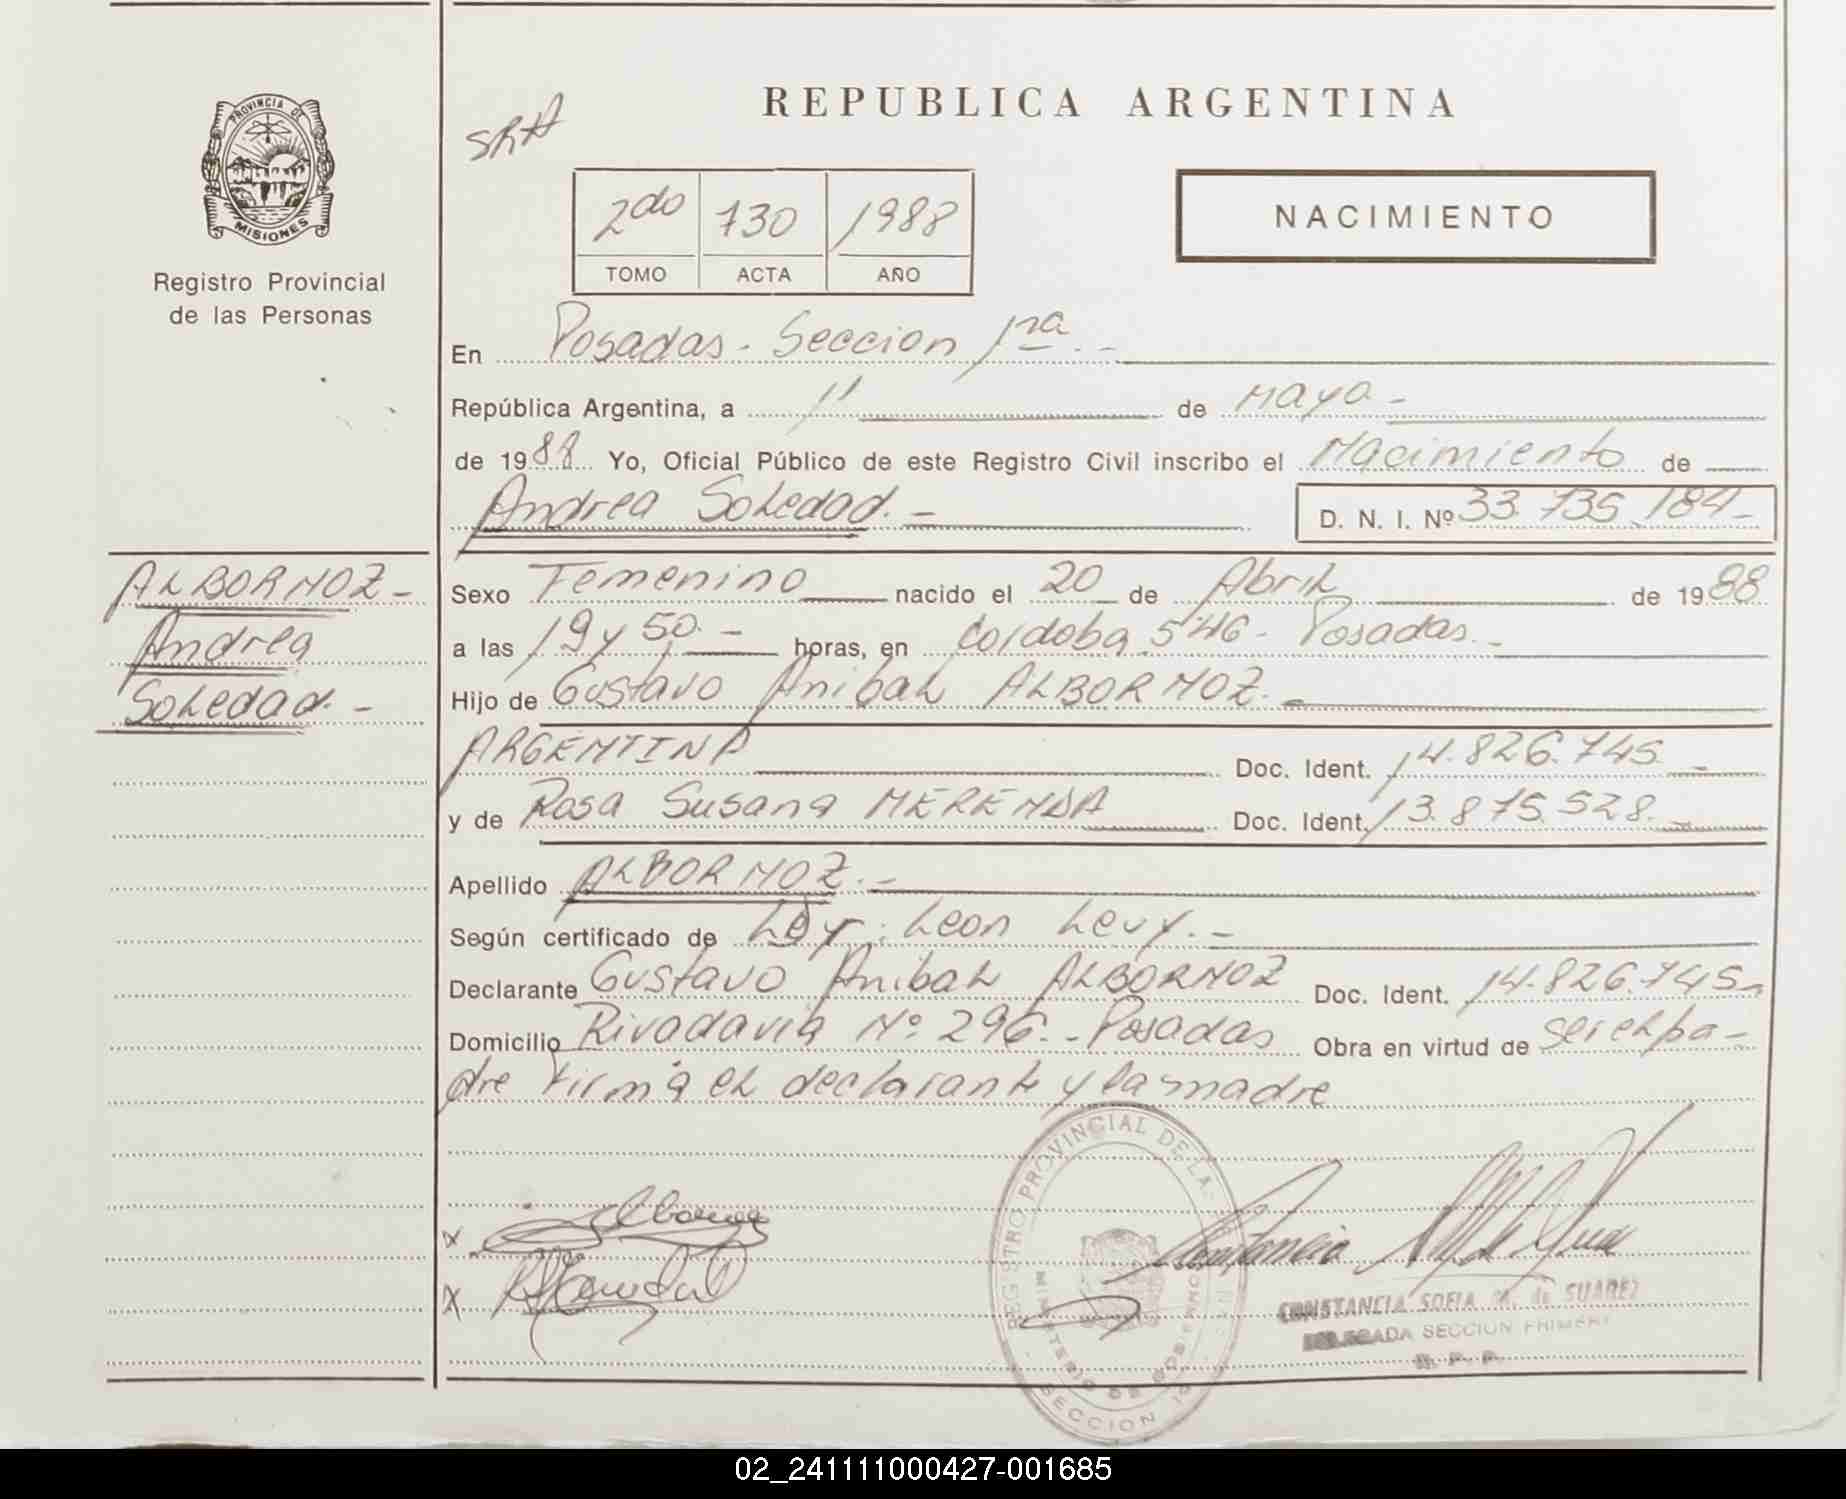 PROVINCIA DE
MISIONES
Registro Provincial
de las Personas
ALBORNOZ -
Andrea
Soledad. -
REPUBLICA ARGENTINA
SRA
2do 730 1988
TOMO ACTA AÑO
NACIMIENTO
En Posadas - Seccion 1ra. -
República Argentina, a 11 de Mayo -
de 1988 Yo, Oficial Público de este Registro Civil inscribo el Nacimiento de
Andrea Soledad. - D. N. I. Nº 33.735.184 -
Sexo Femenino nacido el 20 de Abril de 1988
a las 19 y 50. - horas, en Cordoba 546 - Posadas. -
Hijo de Gustavo Anibal ALBORNOZ. -
ARGENTINA Doc. Ident. 14.826.745. -
y de Rosa Susana MERENDA Doc. Ident. 13.875.528. -
Apellido ALBORNOZ. -
Según certificado de Leon Levy. -
Declarante Gustavo Anibal ALBORNOZ Doc. Ident. 14.826.745 -
Domicilio Rivadavia Nº 296. - Posadas Obra en virtud de ser el pa-
dre Firma el declarante y la madre
X
X
REGISTRO PROVINCIAL DE LAS
MINISTERIO DE GOBIERNO
SECCION 1a
CONSTANCIA SOFIA de SUAREZ
DELEGADA SECCION PRIMERA
R. P. P.
02_241111000427-001685